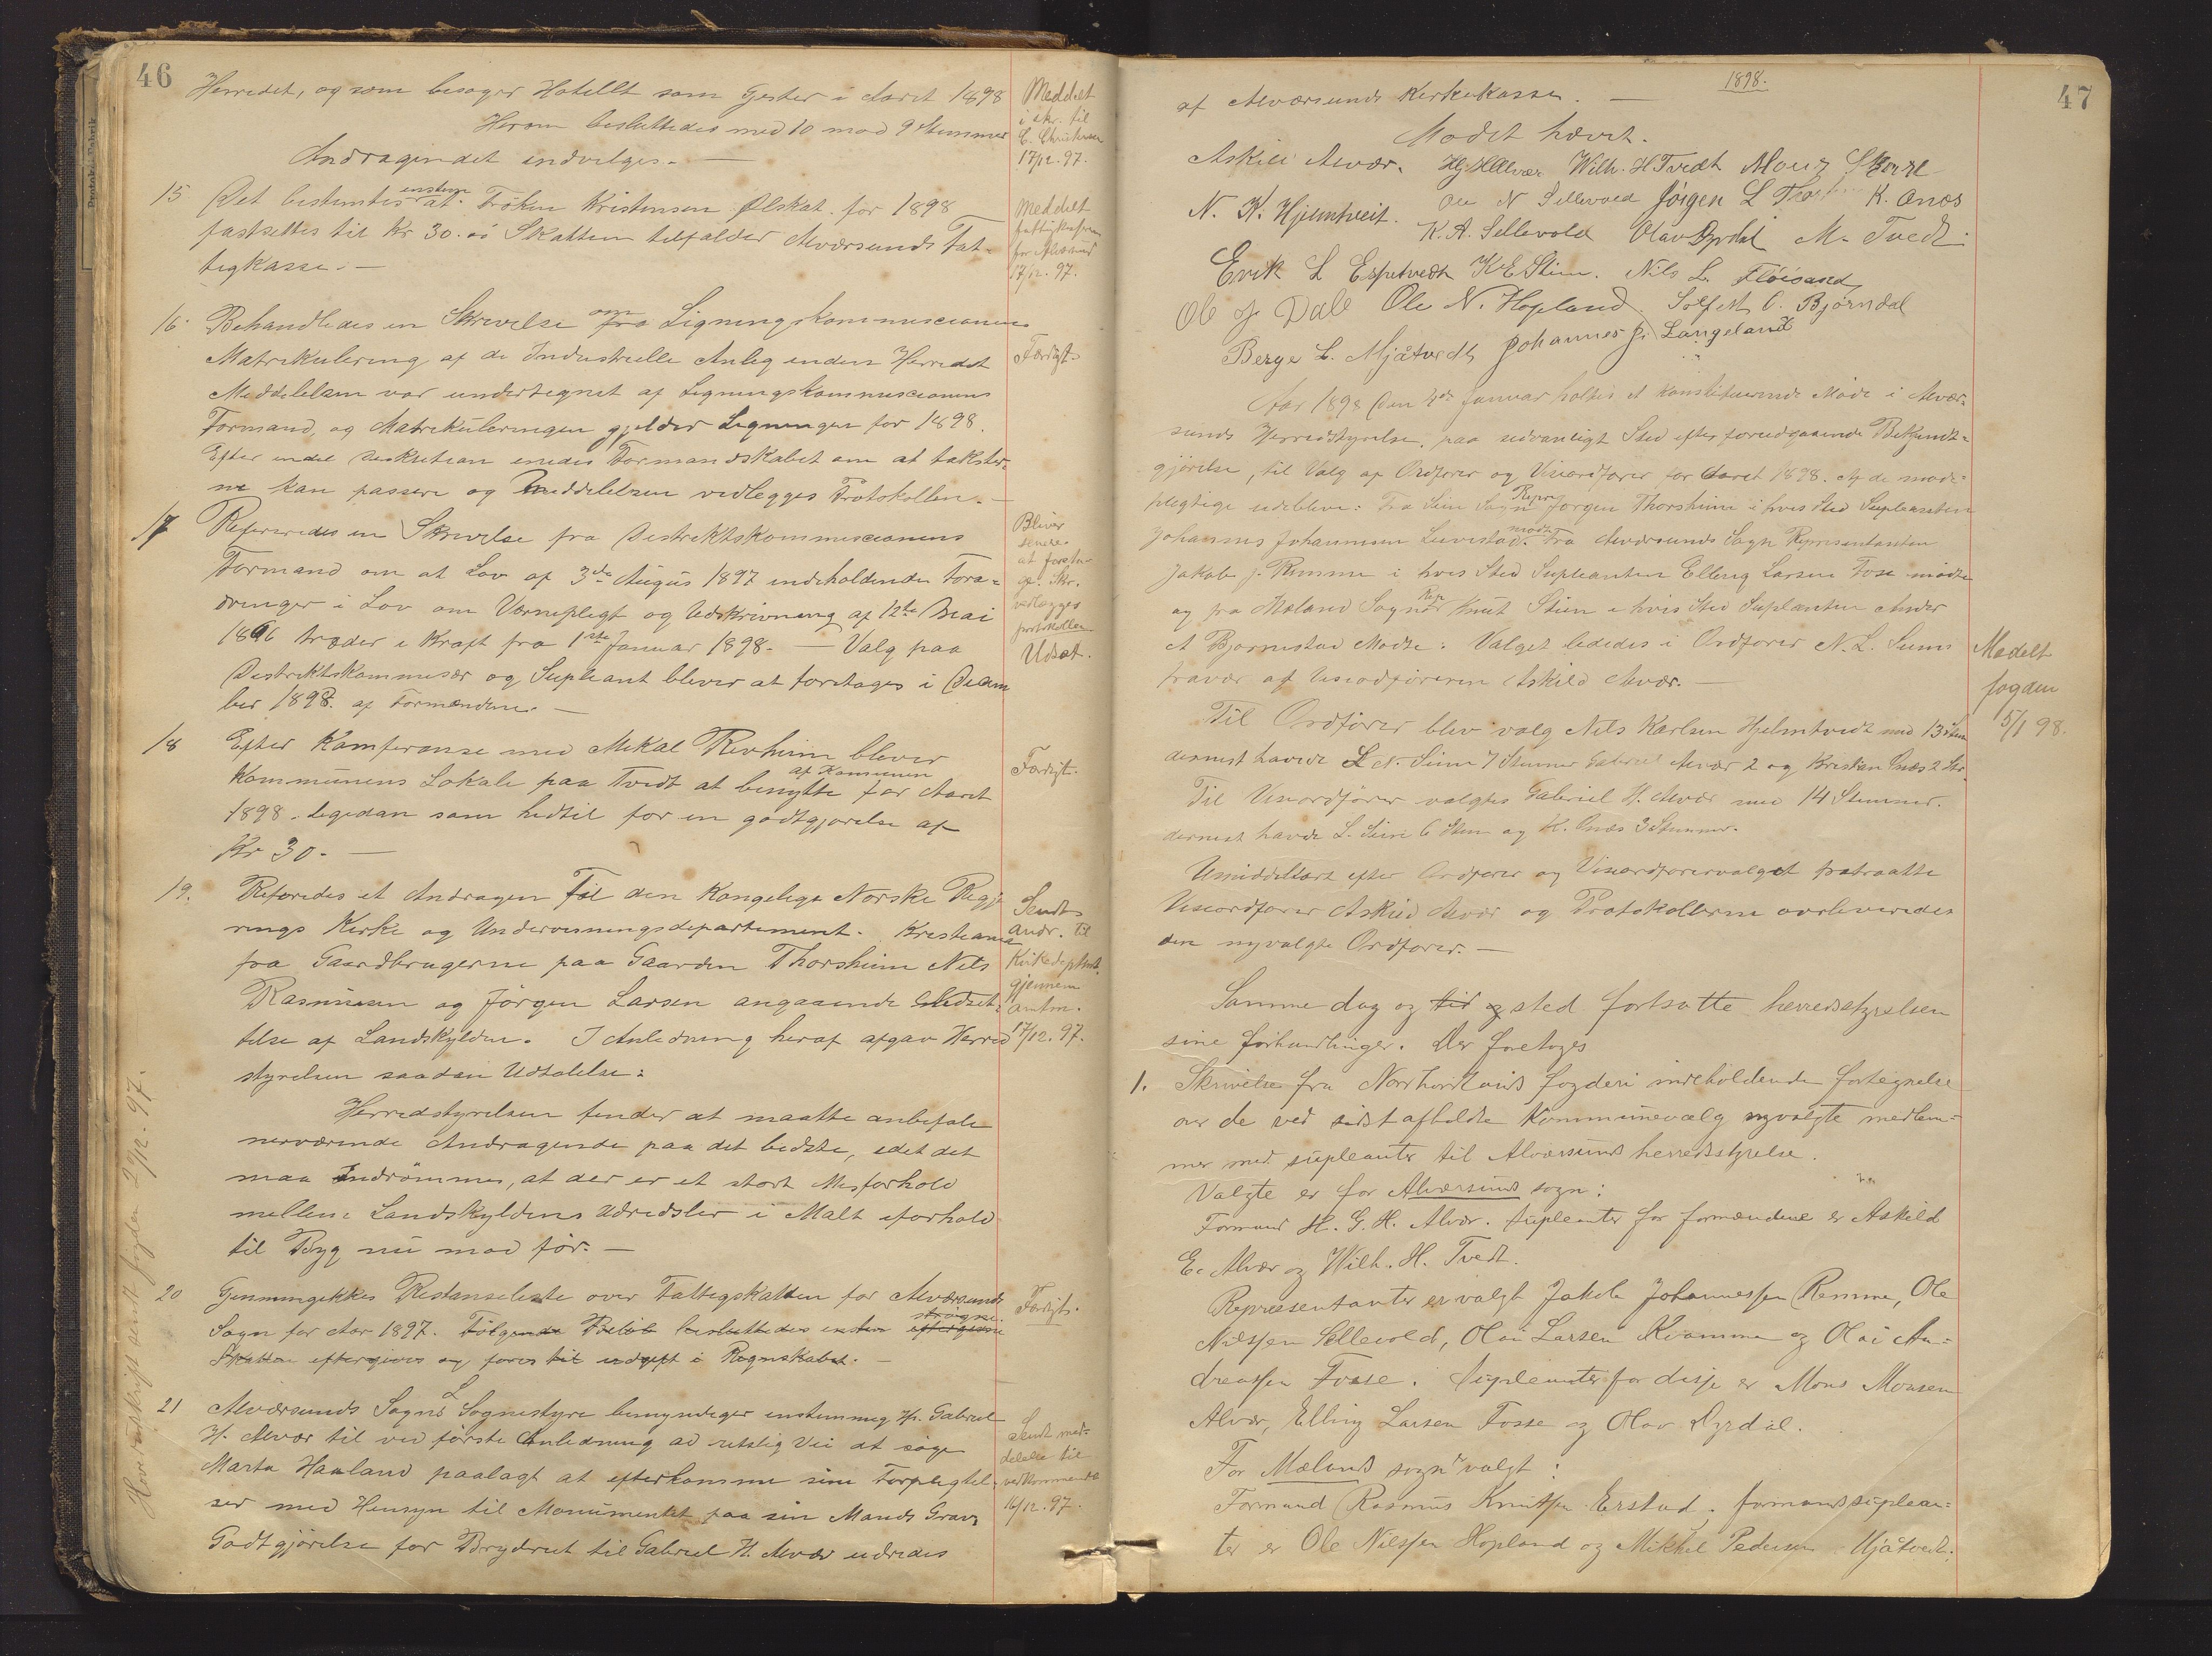 46
Herredet, og som besøger Hotellt som Gjester i Aaret 1898
Herom besluttedes med 10 mod 9 Stemmer
Andragendet indvilges. —
Meddelt
i skr. til
C. Christensen
17/12. 97.
15 Det bestemtes enstem at Frøken Kristensen Ølskat for 1898
fastsettes til Kr 30. Skatten tilfalder Alværsunds Fat-
tigkasse. —
Meddelt
17/12. 97.
16. Behandledes en Skrivelse om fra Ligningskommisscionens
Matrikulering af de Industrielle Anleg inden Herredet
Meddelelsen var undertegnet af Ligningskommisscionens
Formand, og Matrikuleringen gjelder Ligningen for 1898.
Efter endel Diskution enedes Formandskabet om at takster-
ne kan passere og Meddelelsen vedlegges Protokollen. —
Færdigt.
17 Refereredes en Skrivelse fra Destriktskommisscionens
Formand om at Lov af 3die August 1897 indeholdende Foran-
dringer i Lov om Vernepligt og Udskrivning af 12te Mai
1896 træder i Kraft fra 1ste Januar 1898. — Valg paa
Destriktskommisær og Supleant bliver at foretages i Decem
ber 1898. af Formændene. —
Bliver
senere
at foreta-
ge. Skr.
vedlægges
protokollen
Udsat.
18 Efter Konferanse med Mikal Revheim bliver
Kommunens Lokale paa Tvedt at benytte af Komunen for Aaret
1898. ligedan som hidtil for en godtgjørelse af
Kr 30. —
Færdigt.
19. Referedes et Andragen Til den Kongelige Norske Regje
rings Kirke og Undervisningsdepartement. Kristiania
fra Gaardbrugerne paa Gaarden Thorsheim Nils
Rasmussen og Jørgen Larsen angaaende Nedset-
telse af Landskylden. I Anledning heraf afgav Herred
styrelsen saadan Udtalelse:
Sendt
Andr. til
Kirkedeptmt.
gjennem
amtm.
17/12. 97.
Herredstyrelsen finder at maatte anbefale
nerværende Andragende paa det bedste, idet det
maa Indrømmes, at der er et stort Misforhold
mellem Landskyldens Udredsler i Malt iforhold
til Byg nu mod før. —
20 Gjennemgikkes Restanseliste over Fattigskatten for Alværsunds
Sogn for Aar 1897. Følgende Beløb besluttedes enstem strøgne eftergivne
Skatten eftergives og føres til udgift i Regnskabet. —
Færdigt.
21 Alværsunds Sogns Sognestyre bemyndiger enstemmig Hr. Gabriel
H. Alvær til ved første Anledning ad retslig Vei at søge
Marta Haaland paalagt at efterkomme sine Forpligtel-
ser med Hensyn til Monumentet paa sin Mands Grav
Godtgjørelse for Bryderiet til Gabriel H. Alvær udredes
Sendt med-
delelse til
vedkommende
16/12. 97.
Hoveduskrift sendt fogden 2/12. 97.
1898.
47
af Alværsunds Kirkekasse. —
Mødet hævet.
Askild Alvær. HGHAlvær Wilh. H Tvedt Mons
N. K. Hjelmtveit. Ole N Sellevold Jørgen L K. Onæs
K. A. Sellevold Olav Dyrdal M. Tvedt.
Erik L Espetvedt K E Stim. Nils L. Fløisand
Ole J Dale Ole N. Hopland Solfest O. Bjørndal
Berge L. Mjåtvedt Johannes J. Langeland
Aar 1898 Den 4de Januar holdtes et konstituerende Møde i Alvær-
sunds Herredstyrelse, paa sedvanligt Sted efter forudgaaende Bekjendt-
gjørelse, til Valg af Ordfører og Viseordfører for Aaret 1898. Af de møde-
pligtige udebleve: Fra Seim Sogn Repr Jørgen Thorsheim i hvis Sted Supleanten
Johannes Johannesen mødte. Fra Alværsunds Sogn Representanten
Jakob J. Remme i hvis Sted Supleanten Elling Larsen Fose mødte
og fra Mæland Sogn Rep Knut Stim i hvis Sted Suplanten Ander
A Bjørnestad Mødte. Valget lededes i Ordfører N. L. Seims
fravær af Viseordføreren Askild Alvær. —
Til Ordfører blev valg Nils Karlsen Hjelmtvedt med 13 Stem
dernest havde L N. Seim 7 Stemmer Gabriel Alvær 2 og Kristian Onæs 2 Ste.
Til Viseordfører valgtes Gabriel H. Alvær med 14 Stemmer.
dernest havde L. Seim 6 Stem og K. Onæs 3 Stemmer.
Umiddelbart efter Ordfører og Viseordførervalget fratraatte
Viseordfører Askild Alvær og Protokollerne overleveredes
den nyvalgte Ordfører. —
Medelt
fogden
5/1 98.
Samme dag og tid og sted fortsatte herredsstyrelsen
sine forhandlinger. Der foretoges
1. Skrivelse fra Nordhordlands fogderi indeholdende fortegnelse
over de ved sidst afholdte Kommunevalg nyvalgte medlem-
mer med supleanter til Alværsunds herredsstyrelse.
Valgte er for Alværsunds sogn:
Formand H. G. H. Alvær. supleanter for formændene er Askild
E. Alvær og Wilh. H. Tvedt.
Repræsentanter er valgt Jakob Johannessen Remme, Ole
Nilssen Sellevold, Olai Larsen Kvamme og Olai An-
dreassen Fosse. Supleanter for disse er Mons Monsen
Alvær, Elling Larsen Fosse og Olav Dyrdal.
For Mælands sogn valgt:
Formand Rasmus Knutsen Erstad. formandssuplean-
ter er Ole Nilssen Hopland og Mikkel Pedersen Mjåtvedt.